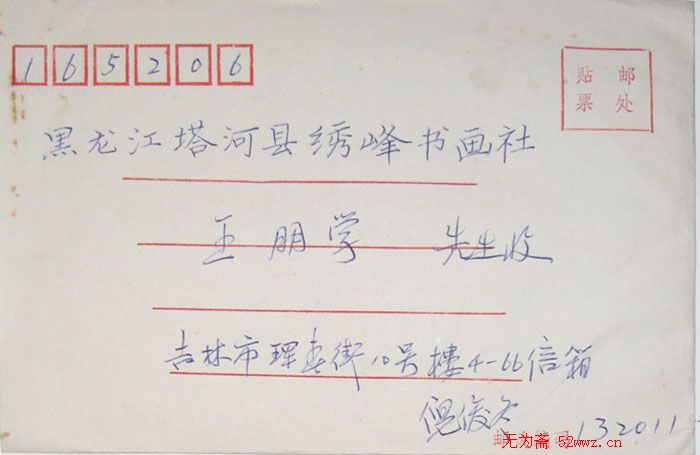 165206
贴邮
票处
黑龙江塔河县绣峰书画社
王朋学 先生收
吉林市珲春街10号樓4-66信箱
倪俊
132011
无为斋 52wwz.cn